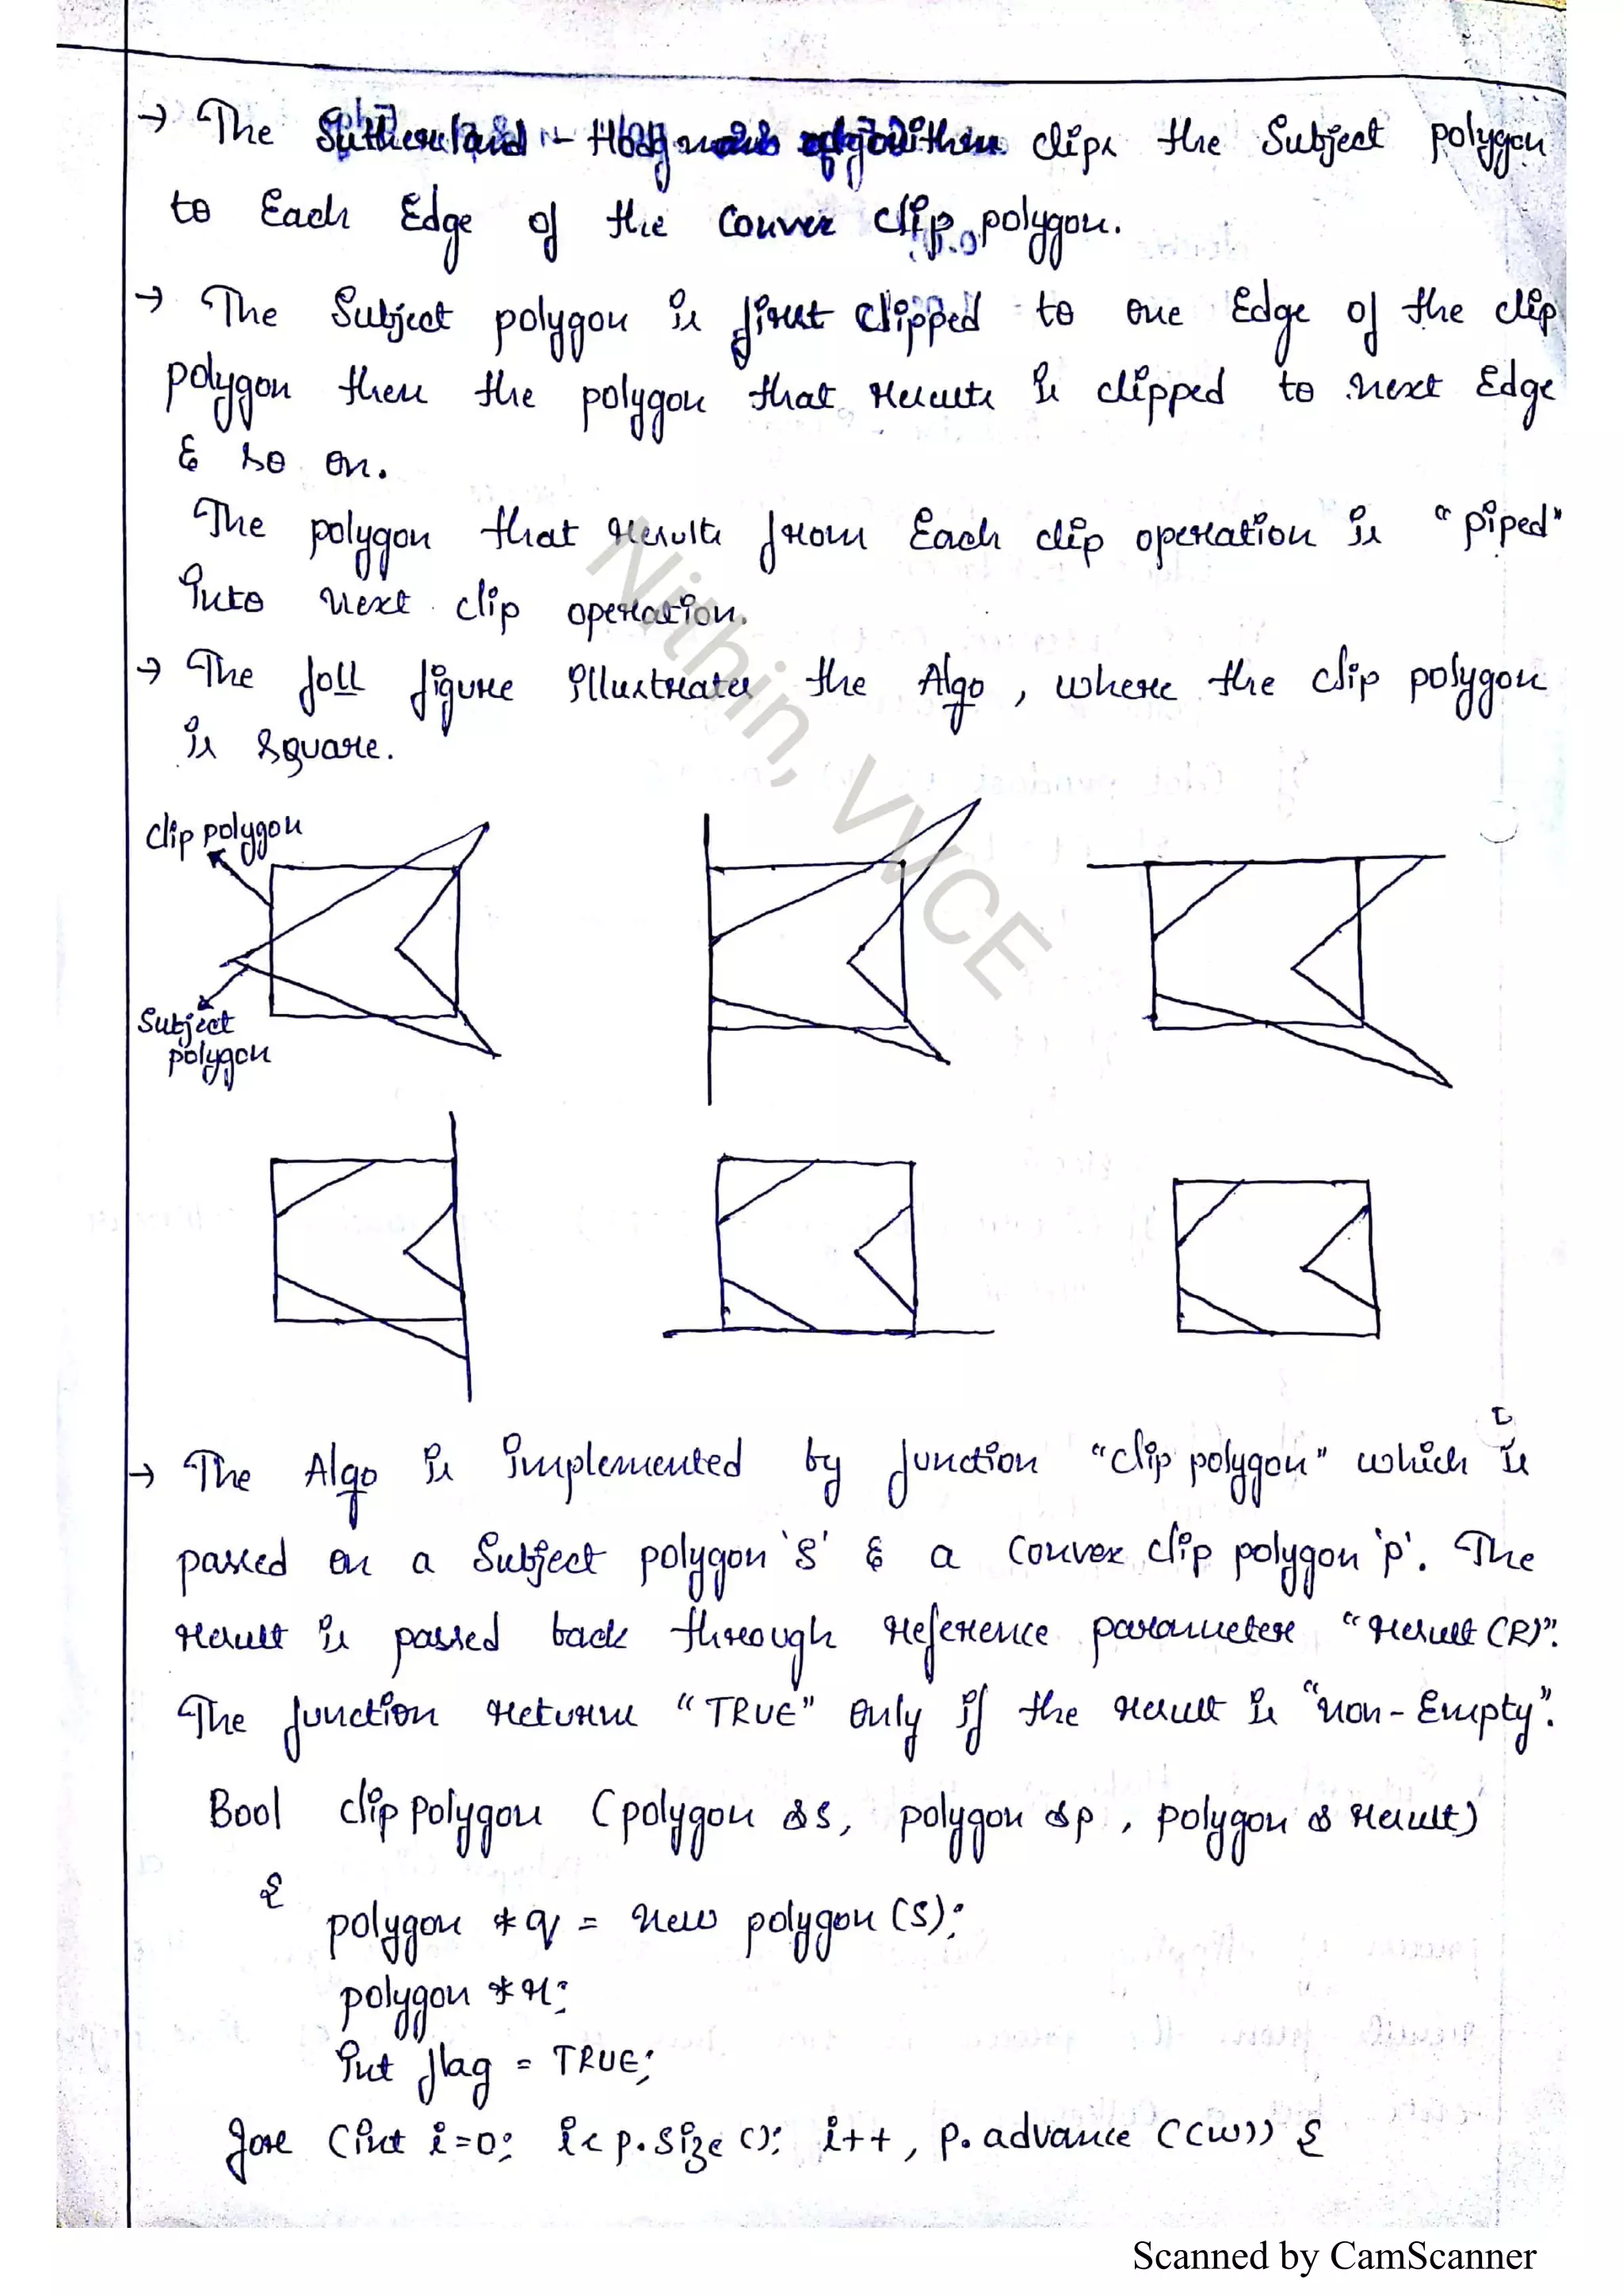 → The Sutherland - Hodgman algorithm clips the Subject polygon
to Each Edge of the Convex clip polygon.
→ The Subject polygon is first clipped to one Edge of the clip
polygon then the polygon that results is clipped to next Edge
& so on.
The polygon that results from Each clip operation is "piped"
into next clip operation.
→ The foll figure illustrates the Algo, where the clip polygon
is square.
Clip polygon
Subject
polygon
→ The Algo is implemented by function "clip polygon" which is
passed on a Subject polygon 'S' & a Convex clip polygon 'p'. The
result is passed back through reference parameter "result (R)".
The function returns "TRUE" only if the result is "non-Empty".
Bool clip polygon (polygon &s, polygon &p, polygon & result)
{
polygon *q = new polygon (s);
polygon *r;
int flag = TRUE;
for (int i=0; i< p.size (); i++, p.advance ((w)) {
Nithin, VVCE
Scanned by CamScanner